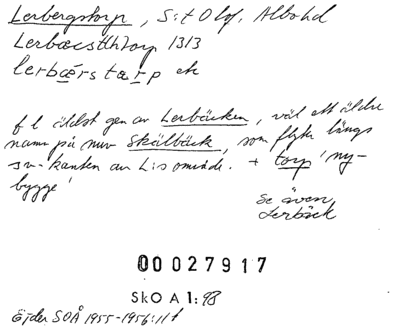 Lerbergstorp, S:t Olof, Albo hd
Lerbæcsthorp 1313
lerbærstarp etc
f l äldst gen av Lerbäcken, väl ett äldre
namn på nuv Skälbäck, som flyter längs
sv-kanten av L:s område. + torp 'ny-
bygge'
se även
Lerbäck
00027917
SkO A 1:98
Ejder SOÅ 1955-1956:11f